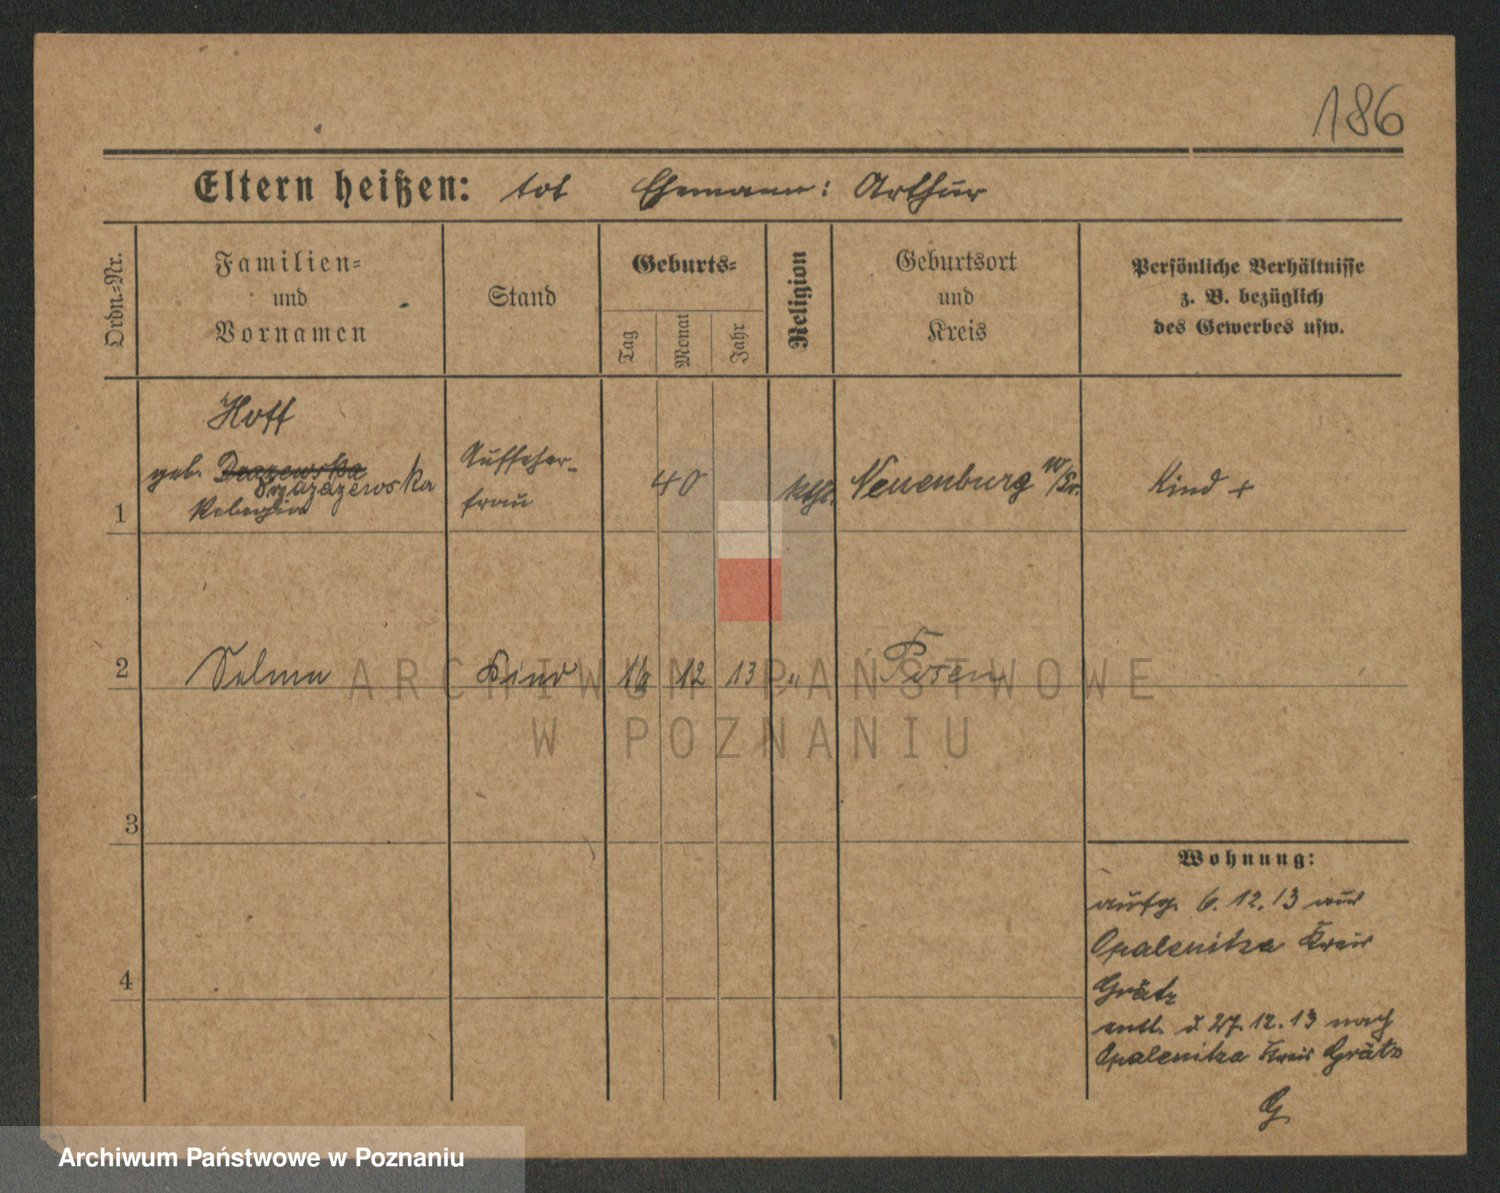 186
Eltern heißen: tot Ehemann: Arthur
Ordn.-Nr.
Familien-
und
Vornamen
Stand
Geburts-
Tag
Monat
Jahr
Religion
Geburtsort
und
Kreis
Persönliche Verhältnisse
z. B. bezüglich
des Gewerbes usw.
1
Hoff
geb.
Pelagia
Aufseher-
frau
40
kath.
Neuenburg W/Pr.
Kind +
2
Selma
Kind
16
12
13
"
Posen
3
4
Wohnung:
aufg. 6.12.13 aus
Opalenitza Kreis
Grätz
entl. d. 27.12.13 nach
Opalenitza Kreis Grätz
G
ARCHIWUM PAŃSTWOWE
W POZNANIU
Archiwum Państwowe w Poznaniu